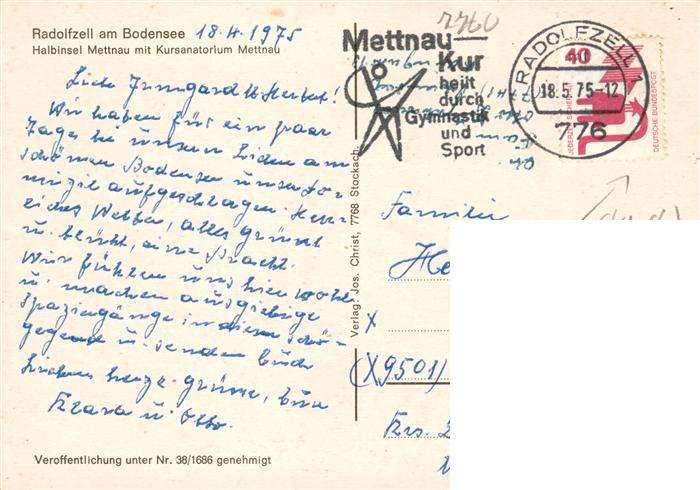 Radolfzell am Bodensee 18.4.1975
Halbinsel Mettnau mit Kursanatorium Mettnau
Liebe Irmgard u. Herbert!
Wir haben für ein paar
Tage bei unsern Lieben am
schönen Bodensee unser
aufgeschlagen. Herr-
liches Wetter, alles grünt
u. blüht, eine Pracht.
Wir fühlen uns hier wohl
u. machen ausgiebige
Spaziergänge in dieser schö-
gegend u. senden Euch
Lieben herzl. grüsse, Eure
Klara u. Otto.
Veroffentlichung unter Nr. 38/1686 genehmigt
Verlag: Jos. Christ, 7768 Stockach.
7760
Mettnau
Kur
heilt
durch
Gymnastik
und
Sport
RADOLFZELL 1
18.5.75-12
776
40
JEDERZEIT SICHERHEIT
DEUTSCHE BUNDESPOST
Familie
He
X
(X9501)
Krs.